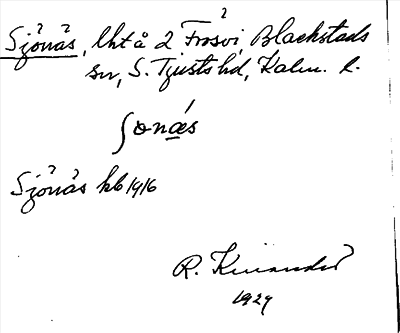 Sjönäs, lht å 2 Frösvi, Blackstads
sn, S. Tjusts hd, Kalm. l.
ʃönæ̀s
Sjönäs kb 1916
R. Kinander
1929